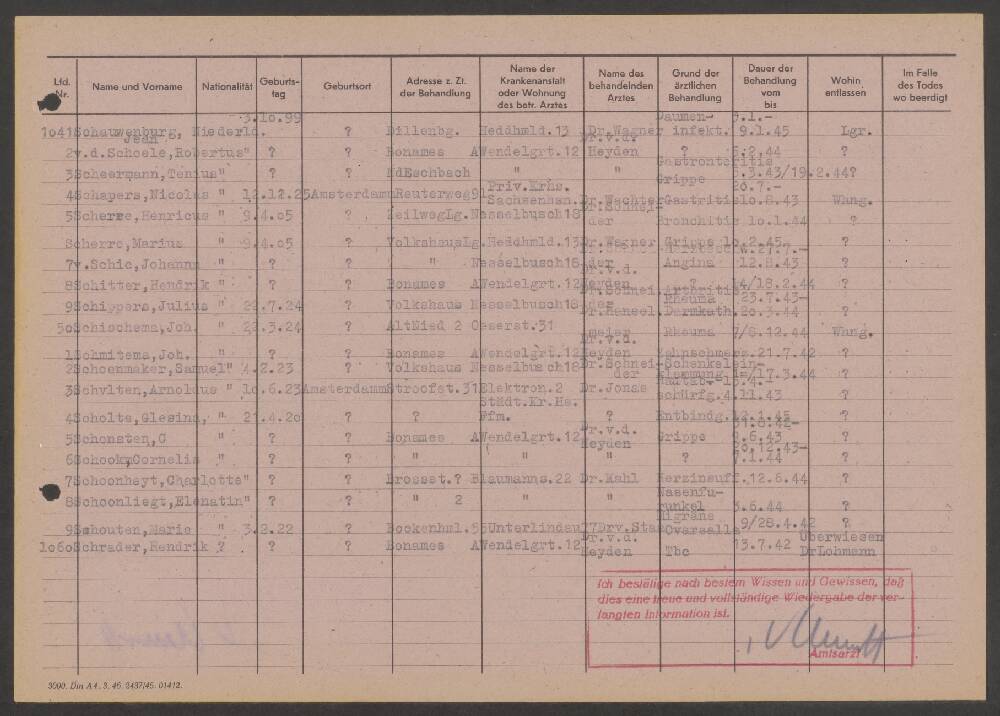 Lfd. Nr. Name und Vorname Nationalität Geburts-tag Geburtsort Adresse z. Zt. der Behandlung Name der Krankenanstalt oder Wohnung des betr. Arztes Name des behandelnden Arztes Grund der ärztlichen Behandlung Dauer der Behandlung vom bis Wohin entlassen Im Falle des Todes wo beerdigt
3.10.99 Daumen- 5.1.-
1041 Schauwenburg, Niederld. ? Dillenbg. Heddhmld.13 Dr.Wagner infekt. 9.1.45 Lgr.
Jean Dr.v.d.
2 v.d.Schoele,Robertus" ? ? Bonames AWendelgrt.12 Heyden ? 5.2.44 ?
Gastronteritis
3 Scheermann,Tenius" ? ? NdEschbach " " 5.3.43/19.2.44?
Priv.Krhs. Grippe 20.7.-
4 Schapers,Nicolas " 12.12.25 Amsterdamm Reuterweg91 Sachsenhsn. Dr.Wachter Gastritis 10.8.43 Whng.
Dr.Schnei-
5 Scherre,Henricus " 9.4.05 ? ZeilwegLg. Nesselbusch18 der Bronchitis 10.1.44 ?
Scherre,Marius " 9.4.05 ? VolkshausLg. Heddhmld.13 Dr.Wagner Grippe 10.2.45 ?
7 v.Schic,Johann " ? ? " Nesselbusch18 der Angina 12.8.43 ?
Dr.v.d.
8 Schitter,Hendrik " ? ? Bonames AWendelgrt.12 Heyden ? 14/18.2.44 ?
Dr.Schnei- Arthritis
9 Schippers,Julius " 22.7.24 ? Volkshaus Nesselbusch18 der Rheuma 23.7.43- ?
Dr.Hensel. Darmkath. 20.3.44
50 Schischema,Joh. " 22.3.24 ? AltNied 2 Oeserst.31 meier Rheuma 7/8.12.44 Whng.
Dr.v.d.
1 Schmitema,Joh. " ? ? Bonames AWendelgrt.12 Heyden Zahnschmerz 21.7.42 ?
2 Schoenmaker,Samuel" 4.2.23 ? Volkshaus Nesselbusch18 Dr.Schnei- Schenkelein-
der klemmung 1-/17.3.44 ?
Hautab- 15.4.-
3 Schvlten,Arnoldus " 10.6.23 Amsterdamm Stroofst.31 Elektron.2 Dr.Jonas schürfg. 4.11.43 ?
Städt.Kr.Hs.
4 Scholte,Glesina, " 21.4.20 ? ? Ffm. ? Entbindg. 12.1.45 ?
Dr.v.d. 31.8.42-
5 Schonsten,C " ? ? Bonames AWendelgrt.12 Heyden Grippe 9.6.43 ?
30.12.43-
6 Schook,Cornelis " ? ? " " " ? 7.1.44 ?
7 Schoonheyt,Charlotte" ? ? Brosset.? Blaumanns.22 Dr.Kahl Herzinsuff. 12.6.44 ?
Nasenfu-
8 Schoonliegt,Elenatin" ? ? " 2 " " runkel 3.6.44 ?
Migräne
9 Schouten,Marie " 3.2.22 ? Bockenhml.55 Unterlindau 77 Drv.Stam Ovarealla 9/28.4.42 ?
Dr.v.d. Überwiesen
1060 Schrader,Hendrik ? ? ? Bonames AWendelgrt.12 Heyden Tbc 13.7.42 DrLohmann
Ich bestätige nach bestem Wissen und Gewissen, daß
dies eine treue und vollständige Wiedergabe der ver-
langten Information ist.
Amtsarzt
3000. Din A 4. 3. 46. 3437/46. 01412.